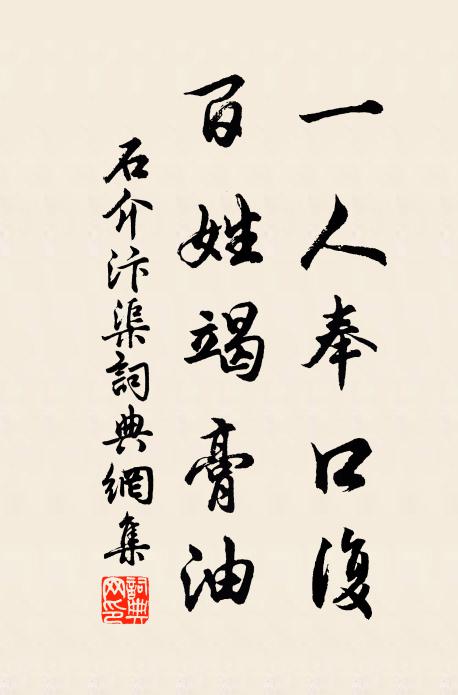 一人奉口復
百姓竭膏油
石介汴渠詞典網集
詞典网印